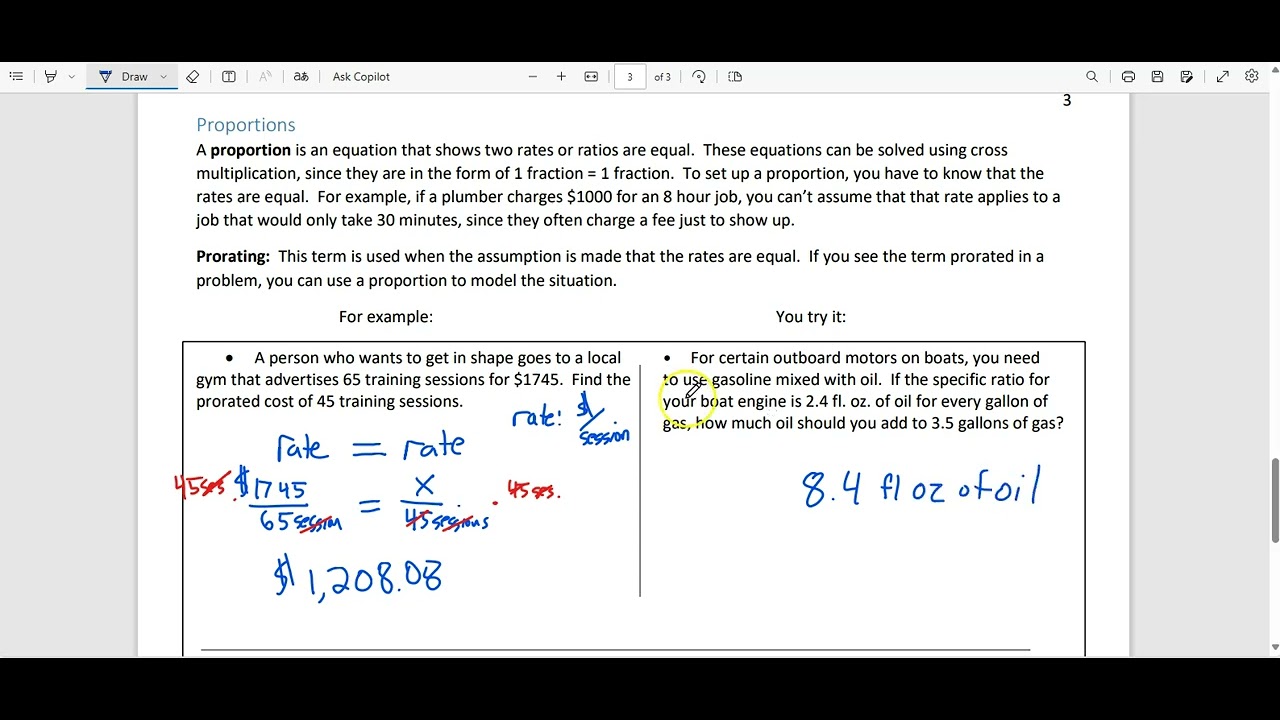 Draw
Ask Copilot
3 of 3
3
Proportions
A proportion is an equation that shows two rates or ratios are equal. These equations can be solved using cross
multiplication, since they are in the form of 1 fraction = 1 fraction. To set up a proportion, you have to know that the
rates are equal. For example, if a plumber charges $1000 for an 8 hour job, you can’t assume that that rate applies to a
job that would only take 30 minutes, since they often charge a fee just to show up.
Prorating: This term is used when the assumption is made that the rates are equal. If you see the term prorated in a
problem, you can use a proportion to model the situation.
For example:
You try it:
• A person who wants to get in shape goes to a local
gym that advertises 65 training sessions for $1745. Find the
prorated cost of 45 training sessions.
rate: $/session
rate = rate
45 ses. · $1745 / 65 session = x / 45 sessions · 45 ses.
$1,208.08
• For certain outboard motors on boats, you need
to use gasoline mixed with oil. If the specific ratio for
your boat engine is 2.4 fl. oz. of oil for every gallon of
gas, how much oil should you add to 3.5 gallons of gas?
8.4 fl oz of oil